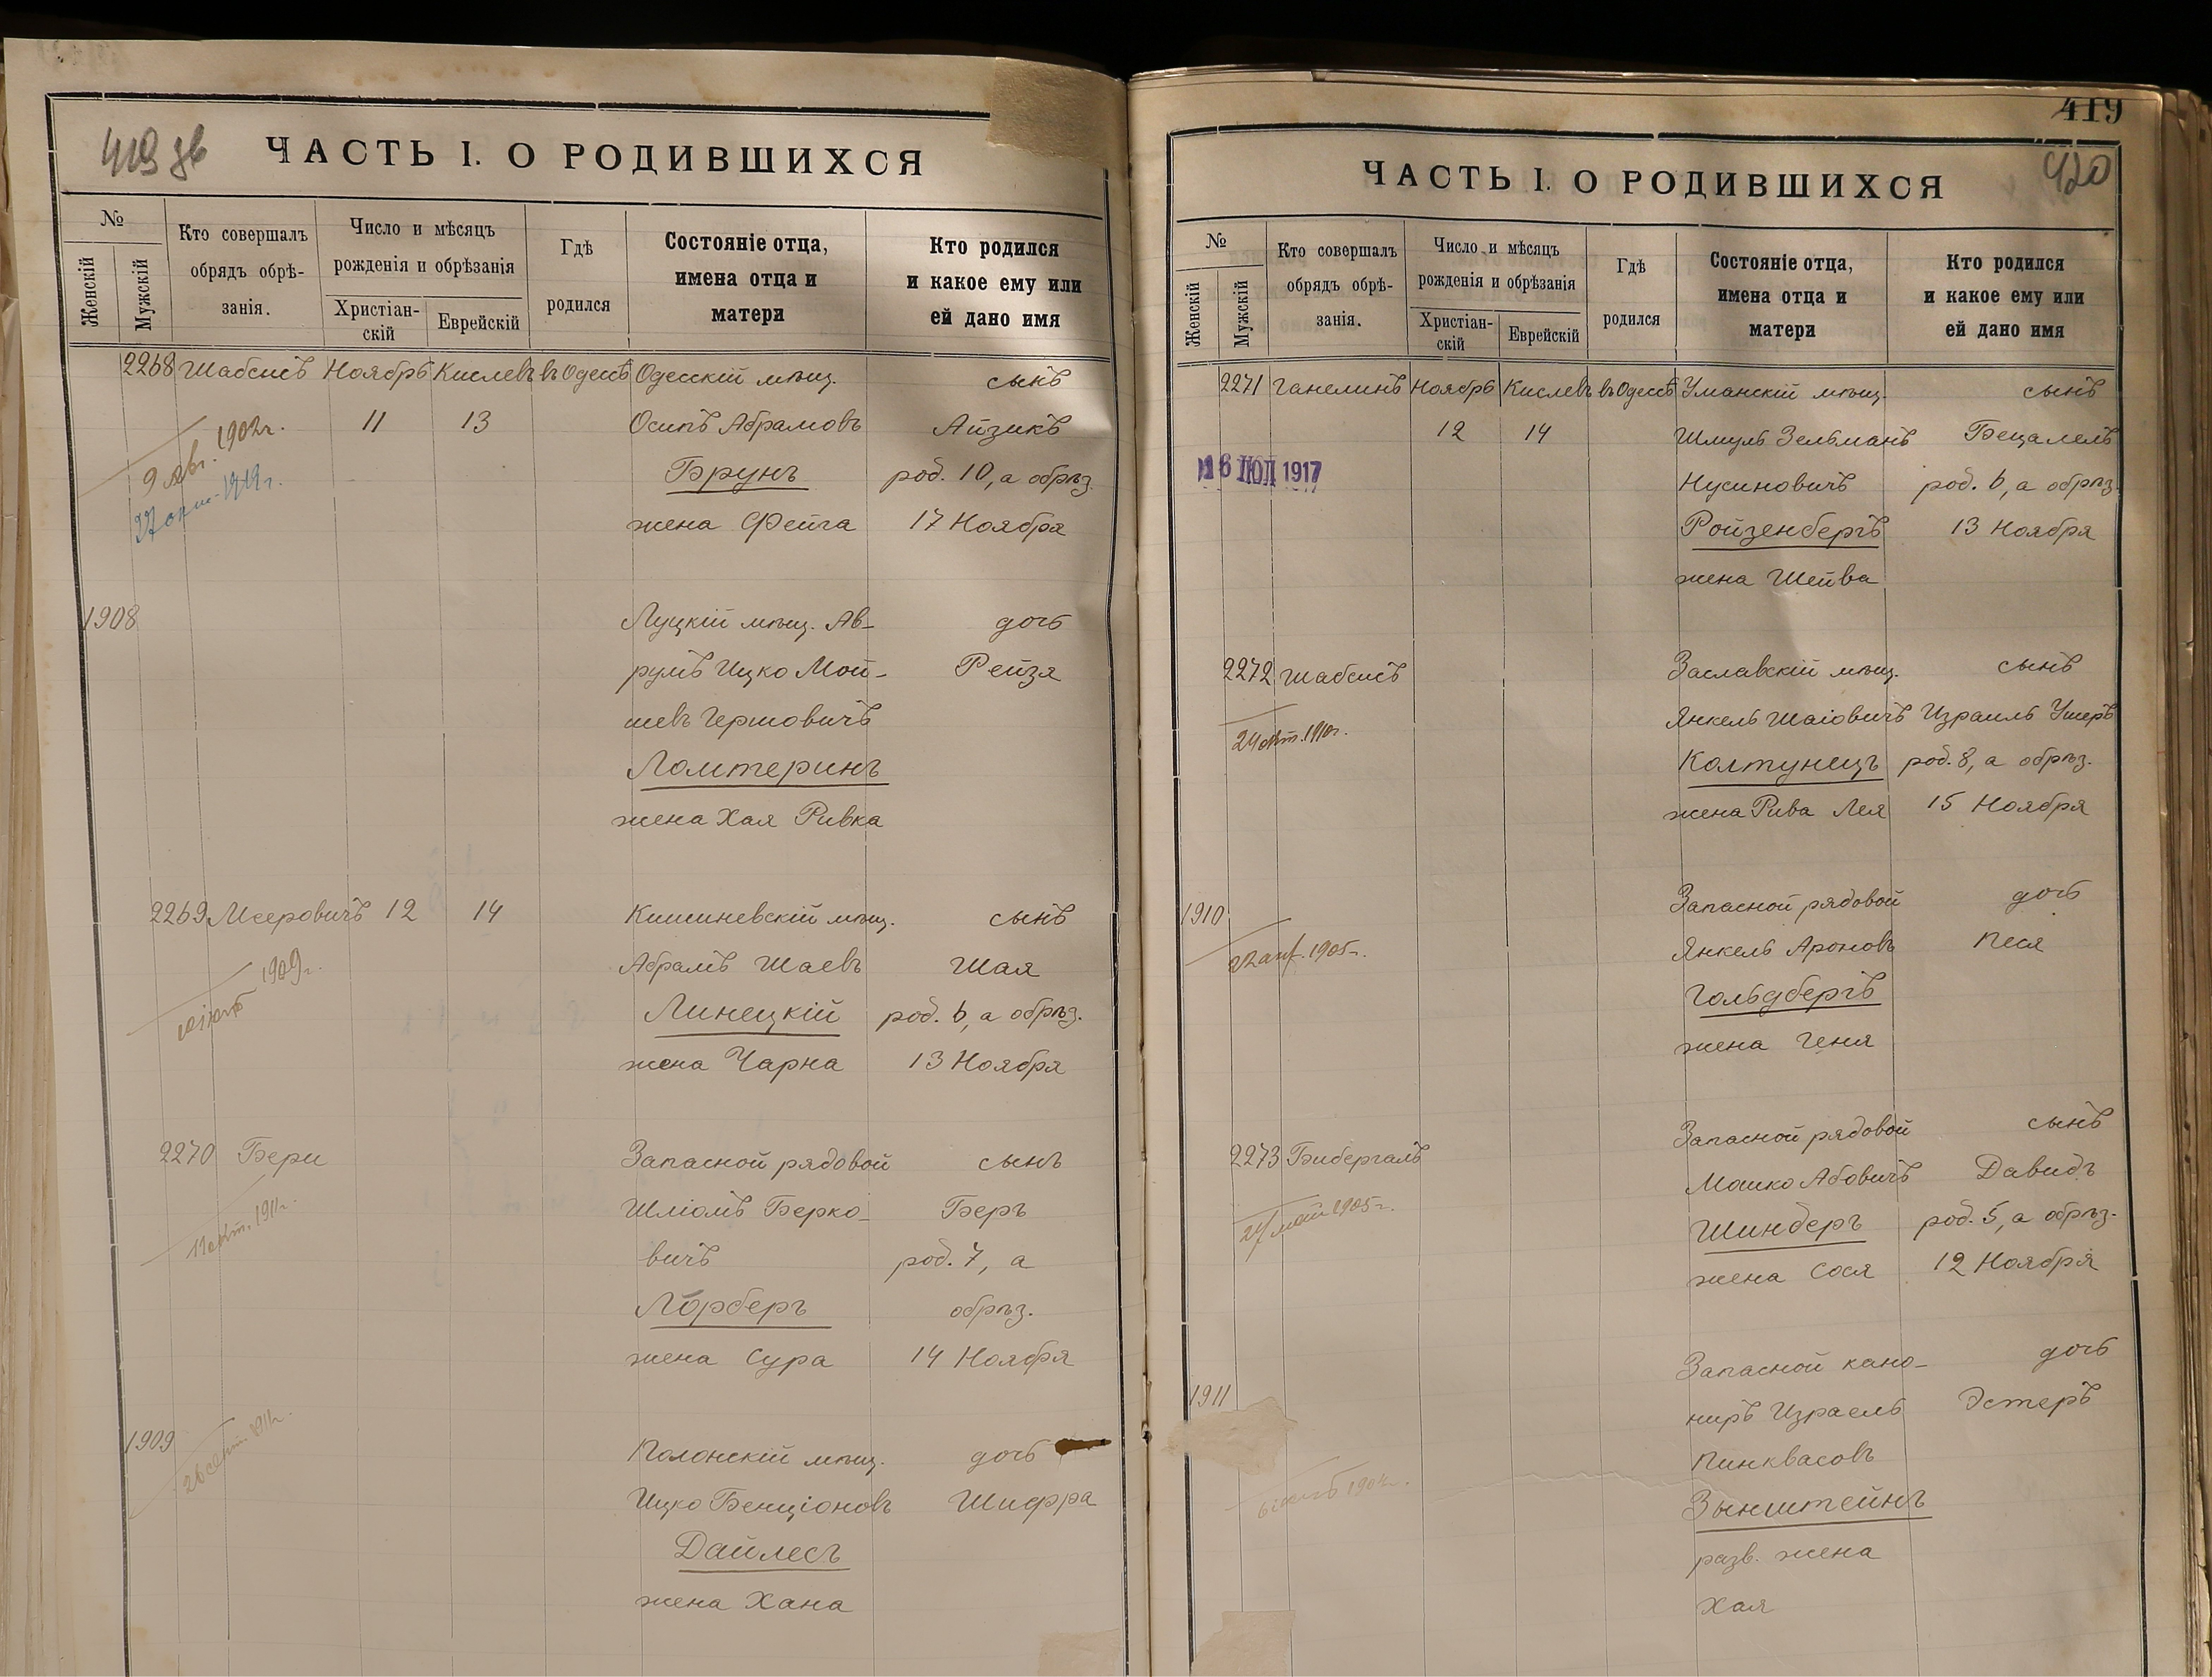 419 зв
ЧАСТЬ I. О РОДИВШИХСЯ
№
Женскій
Мужскій
Кто совершалъ
обрядъ обрѣ-
занія.
Число и мѣсяцъ
рожденія и обрѣзанія
Христіан-
скій
Еврейскій
Гдѣ
родился
Состояніе отца,
имена отца и
матери
Кто родился
и какое ему или
ей дано имя
2268 Шабсисъ Ноябрь Кислевъ въ Одессѣ Одесскій мѣщ. сынъ
11 13 Осипъ Абрамовъ Айзикъ
9 авг. 1902г.
Брунъ род. 10, а обрѣз.
1919г.
жена Фейга 17 Ноября
1908 Луцкій мѣщ. Ав- дочь
румъ Ицко Мой- Рейзя
шевъ Гершовичъ
Ломтеринъ
жена Хая Ривка
2269 Меeровичъ 12 14 Кишиневскій мѣщ. сынъ
1909г.
Абрамъ Шаевъ Шая
Линецкій род. 6, а обрѣз.
жена Чарна 13 Ноября
2270 Бери Запасной рядовой сынъ
Шліомъ Берко- Беръ
1911г.
вичъ род. 7, а
Лорберъ обрѣз.
жена Сура 14 Ноября
1909 Полонскій мѣщ. дочь
Ицко Бенціоновъ Шифра
Дайлесъ
жена Хана
419
420
ЧАСТЬ I. О РОДИВШИХСЯ
№
Женскій
Мужскій
Кто совершалъ
обрядъ обрѣ-
занія.
Число и мѣсяцъ
рожденія и обрѣзанія
Христіан-
скій
Еврейскій
Гдѣ
родился
Состояніе отца,
имена отца и
матери
Кто родился
и какое ему или
ей дано имя
2271 Ганелинъ Ноябрь Кислевъ въ Одессѣ Уманскій мѣщ. сынъ
12 14 Шмуль Зельманъ Бецалель
16 ІЮЛ 1917
Нусиновичъ род. 6, а обрѣз.
Ройзенбергъ 13 Ноября
жена Шейва
2272 Шабсисъ Заславскій мѣщ. сынъ
Янкель Шаіовичъ Израиль Ушеръ
24 окт. 1910г.
Колтунецъ род. 8, а обрѣз.
жена Рива Лея 15 Ноября
1910 Запасной рядовой дочь
22 1905г.
Янкель Ароновъ Песя
Гольдбергъ
жена Геня
2273 Бибергалъ Запасной рядовой сынъ
Мошко Абовичъ Давидъ
27 май 1905г.
Шинберъ род. 5, а обрѣз.
жена Сося 12 Ноября
1911 Запасной кано- дочь
ниръ Израель Эстеръ
Пинквасовъ
Зынштейнъ
разв. жена
Хая